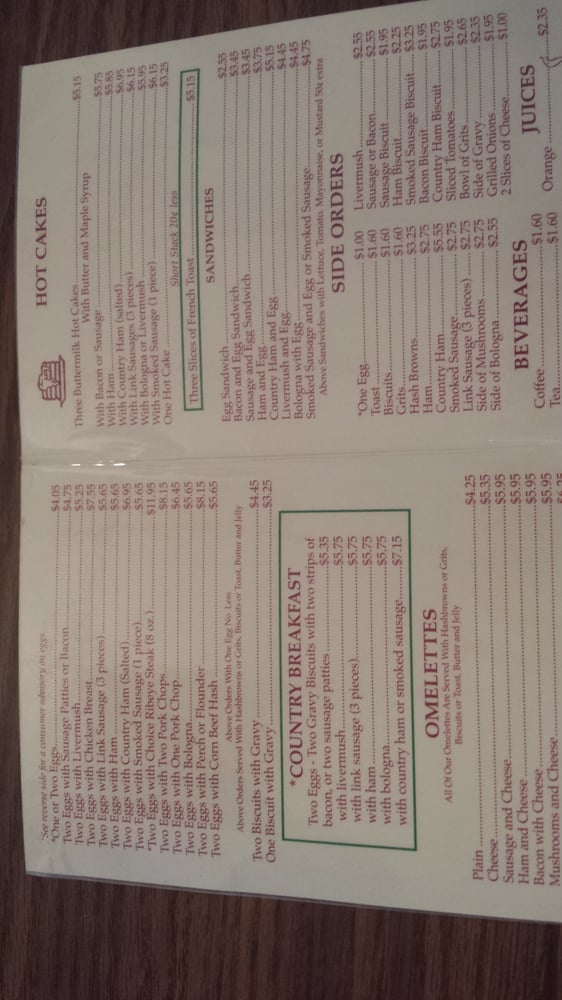 *See reverse side for a consumer advisory on eggs.
*One or Two Eggs $4.05
Two Eggs with Sausage Patties or Bacon $4.75
Two Eggs with Livermush $5.25
Two Eggs with Chicken Breast $7.55
Two Eggs with Link Sausage (3 pieces) $5.65
Two Eggs with Ham $5.65
Two Eggs with Country Ham (Salted) $6.95
Two Eggs with Smoked Sausage (1 piece) $5.65
*Two Eggs with Choice Ribeye Steak (8 oz.) $11.95
Two Eggs with Two Pork Chops $8.15
Two Eggs with One Pork Chop $6.45
Two Eggs with Bologna $5.65
Two Eggs with Perch or Flounder $8.15
Two Eggs with Corn Beef Hash $5.65
Above Orders With One Egg No Less
Above Orders Served With Hashbrowns or Grits, Biscuits or Toast, Butter and Jelly
Two Biscuits with Gravy $4.45
One Biscuit with Gravy $3.25
*COUNTRY BREAKFAST
Two Eggs - Two Gravy Biscuits with two strips of
bacon, or two sausage patties $5.35
with livermush $5.75
with link sausage (3 pieces) $5.75
with ham $5.75
with bologna $5.75
with country ham or smoked sausage $7.15
OMELETTES
All Of Our Omelettes Are Served With Hashbrowns or Grits,
Biscuits or Toast, Butter and Jelly
Plain $4.25
Cheese $5.35
Sausage and Cheese $5.95
Ham and Cheese $5.95
Bacon with Cheese $5.95
Mushrooms and Cheese $5.95
HOT CAKES
Three Buttermilk Hot Cakes $5.15
With Butter and Maple Syrup
With Bacon or Sausage $5.75
With Ham $5.85
With Country Ham (salted) $6.95
With Link Sausages (3 pieces) $6.15
With Bologna or Livermush $5.95
With Smoked Sausage (1 piece) $6.15
One Hot Cake $3.25
Short Stack 20¢ less
Three Slices of French Toast $5.15
SANDWICHES
Egg Sandwich $2.55
Bacon and Egg Sandwich $3.45
Sausage and Egg Sandwich $3.45
Ham and Egg $3.75
Country Ham and Egg $5.15
Livermush and Egg $4.45
Bologna with Egg $4.45
Smoked Sausage and Egg or Smoked Sausage $4.75
Above Sandwiches with Lettuce, Tomato, Mayonnaise, or Mustard 50¢ extra
SIDE ORDERS
*One Egg $1.00
Toast $1.60
Biscuits $1.60
Grits $1.60
Hash Browns $3.25
Ham $2.75
Country Ham $5.55
Smoked Sausage $2.75
Link Sausage (3 pieces) $2.75
Side of Mushrooms $2.75
Side of Bologna $2.55
Livermush $2.55
Sausage or Bacon $2.55
Sausage Biscuit $1.95
Ham Biscuit $2.25
Smoked Sausage Biscuit $3.25
Bacon Biscuit $1.95
Country Ham Biscuit $2.75
Sliced Tomatoes $1.95
Bowl of Grits $2.65
Side of Gravy $2.35
Grilled Onions $1.95
2 Slices of Cheese $1.00
BEVERAGES
Coffee $1.60
Tea $1.60
JUICES
Orange $2.35